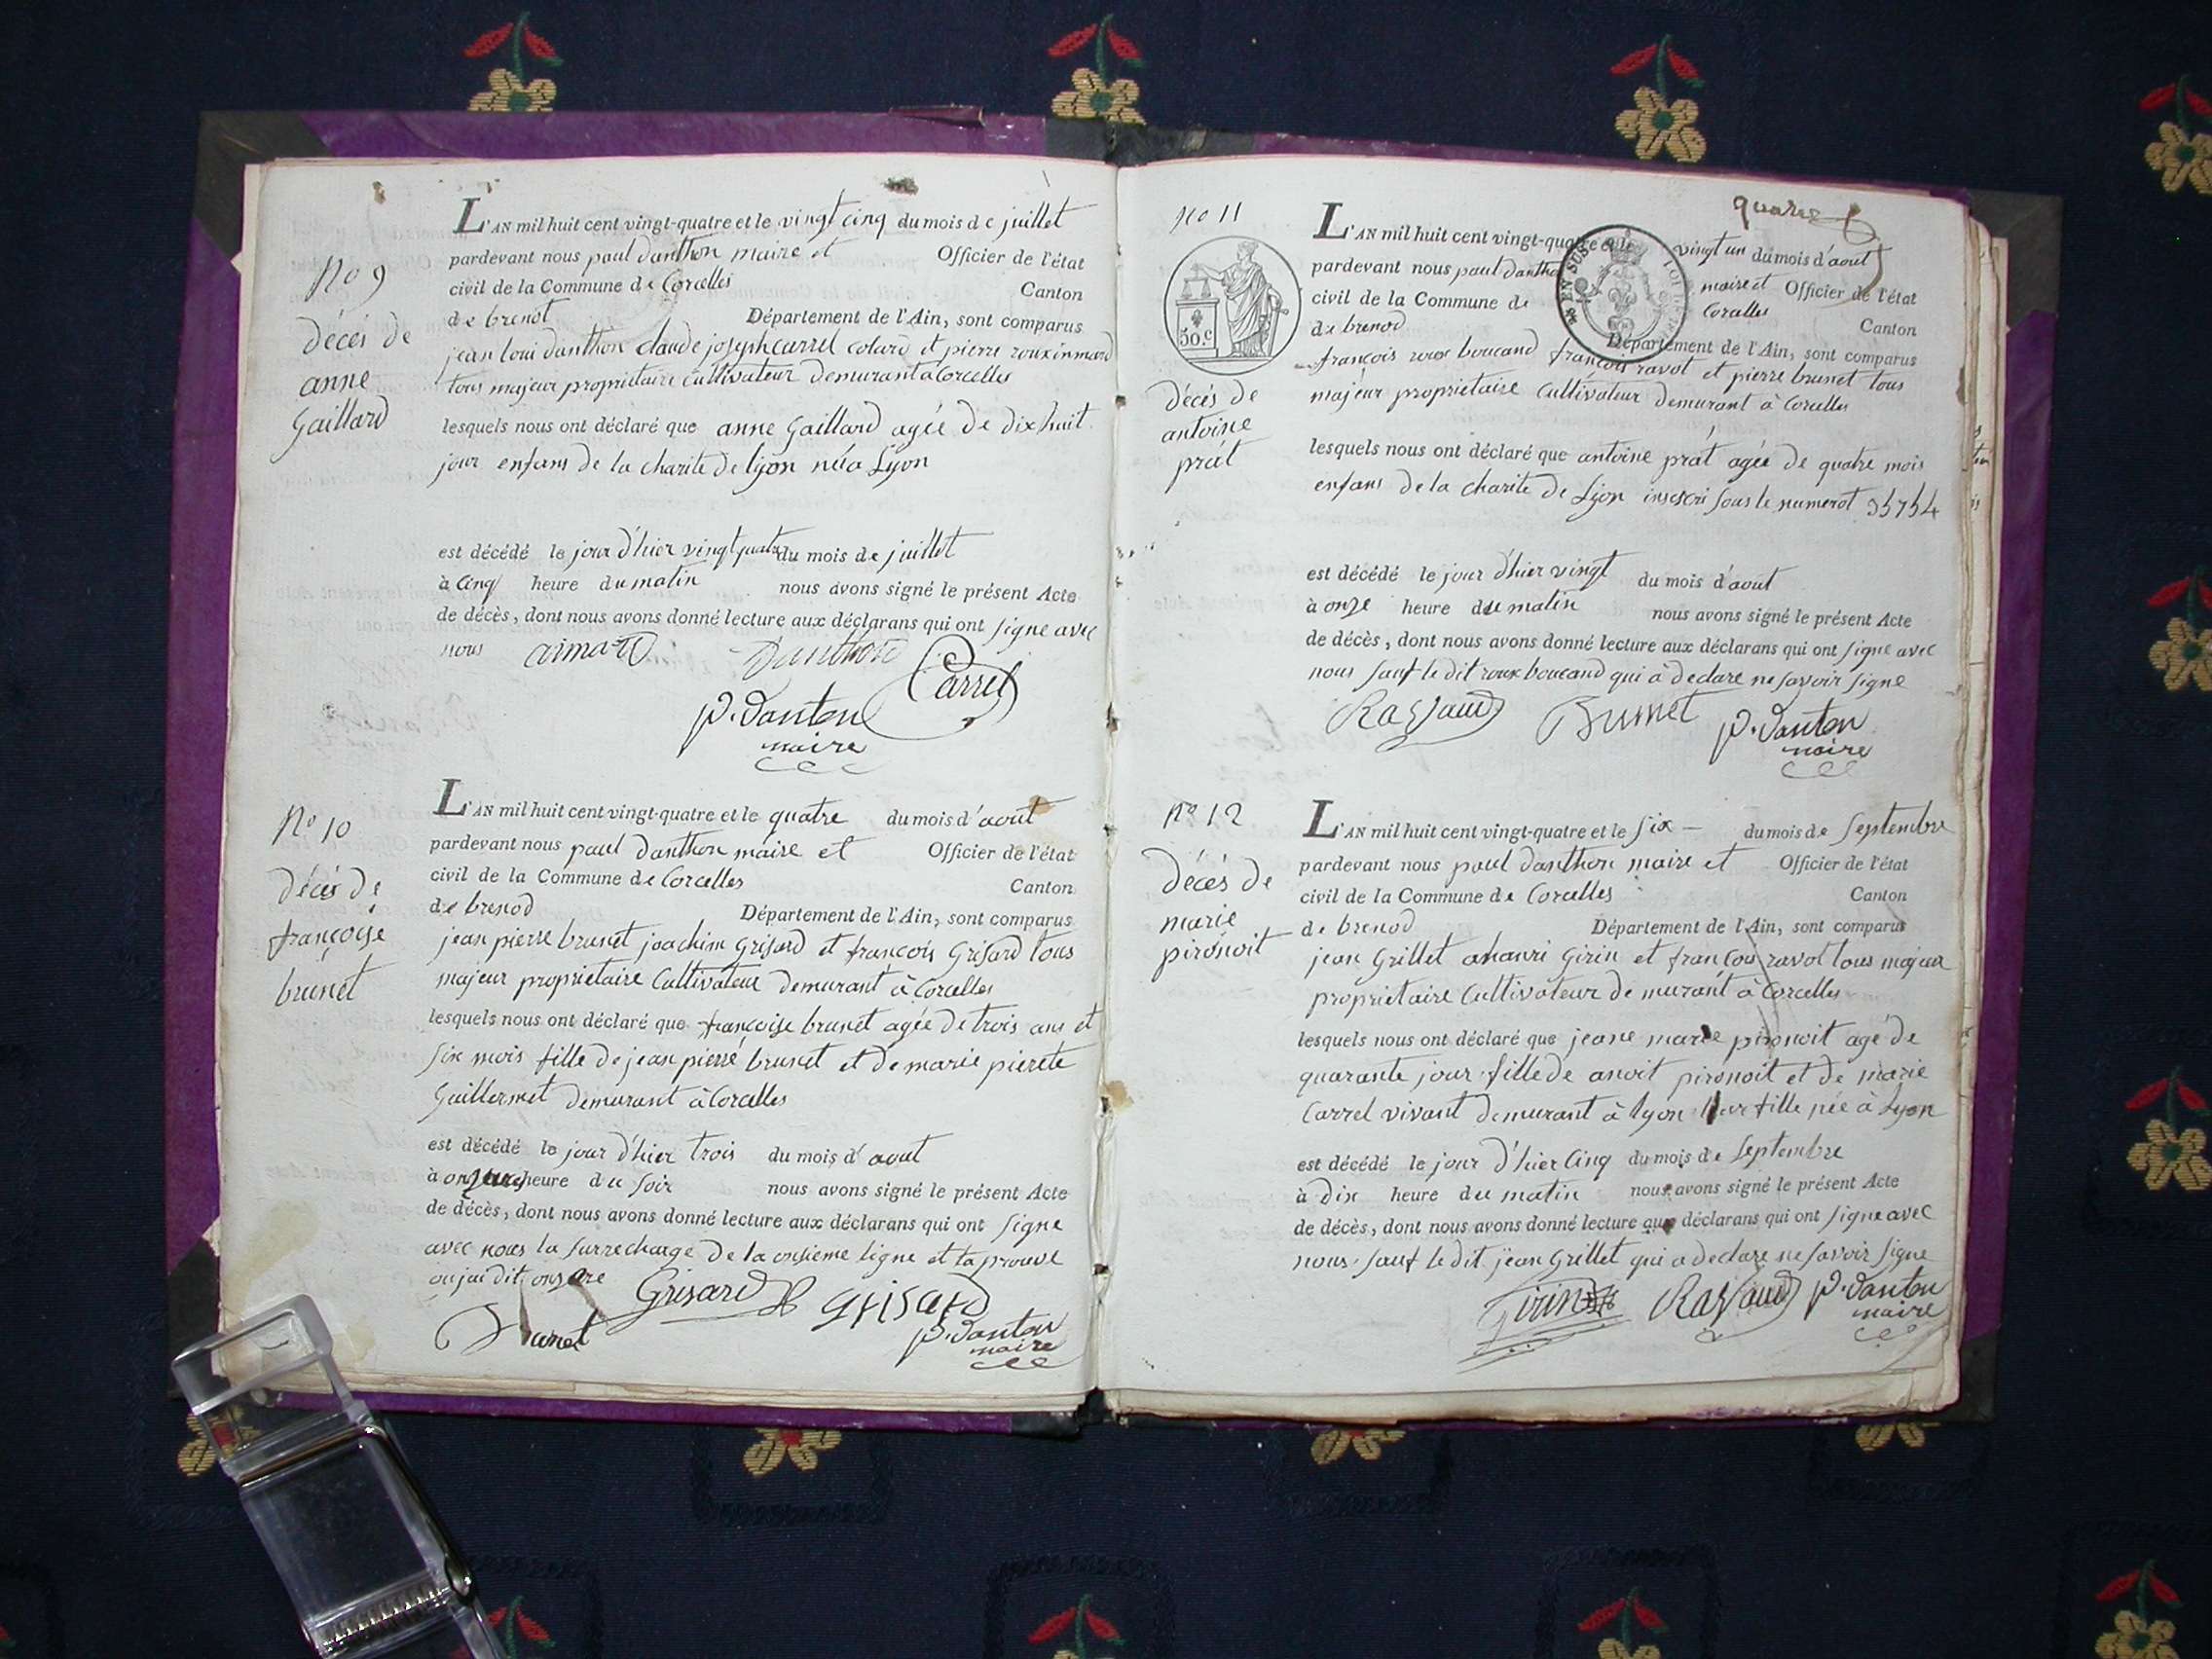 No 9
décés de
anne
Gaillard
L'AN mil huit cent vingt-quatre et le vingt cinq du mois de juillet
pardevant nous paul danthon maire et Officier de l'état
civil de la Commune de Corcelles Canton
de brenot Département de l'Ain, sont comparus
jean loui danthon claude joseph carrel colard et pierre
tous majeur proprietaire Cultivateur demurant a Corcelles
lesquels nous ont déclaré que anne Gaillard agée de dix huit
jour enfans de la charite de lyon née a Lyon
est décédé le jour d'hier vingt quatre du mois de juillet
à Cinq heure du matin nous avons signé le présent Acte
de décès, dont nous avons donné lecture aux déclarans qui ont signe avec
nous aimard Danthon Carrel
p. danton
maire
No 10
décés de
françoise
brunet
L'AN mil huit cent vingt-quatre et le quatre du mois d'aout
pardevant nous paul danthon maire et Officier de l'état
civil de la Commune de Corcelles Canton
de brenod Département de l'Ain, sont comparus
jean pierre brunet joachim Grisard et francois Grisard tous
majeur proprietaire Cultivateur demurant à Corcelles
lesquels nous ont déclaré que françoise brunet agée de trois ans et
six mois fille de jean pierre brunet et de marie pierete
Guillermet demurant à Corcelles
est décédé le jour d'hier trois du mois d'aout
à onze heure du soir nous avons signé le présent Acte
de décès, dont nous avons donné lecture aux déclarans qui ont signe
avec nous la surrecharge de la onsieme ligne et
Grisard grisard
Brunet
p. danton
maire
No 11
50.c
décés de
antoine
prat
EN SUS
L'AN mil huit cent vingt-quatre et le vingt un du mois d'aout
pardevant nous paul dantho maire et Officier de l'état
civil de la Commune de Corcelles Canton
de brenod Département de l'Ain, sont comparus
françois roux boucand francois ravot et pierre brunet tous
majeur proprietaire Cultivateur demurant à Corcelles
lesquels nous ont déclaré que antoine prat agée de quatre mois
enfans de la charite de Lyon inscscri sous le numerot 35754
est décédé le jour d'hier vingt du mois d'aout
à onze heure du matin nous avons signé le présent Acte
de décès, dont nous avons donné lecture aux déclarans qui ont signe avec
nous sauf le dit roux boucand qui à declare ne savoir signe
Brunet p. danton
maire
No 12
décés de
marie
pironoit
L'AN mil huit cent vingt-quatre et le six du mois de Septembre
pardevant nous paul danthon maire et Officier de l'état
civil de la Commune de Corcelles Canton
de brenod Département de l'Ain, sont comparus
jean Grillet ahanri Girin et françou ravot tous majeur
proprietaire Cultivateur de murant à Corcelles
lesquels nous ont déclaré que jeane marie pironoit agé de
quarante jour fille de anoit pironoit et de marie
Carrel vivant demurant à lyon fille née à Lyon
est décédé le jour d'hier Cinq du mois de Septembre
à dix heure du matin nous avons signé le présent Acte
de décès, dont nous avons donné lecture aux déclarans qui ont signe avec
nous sauf le dit jean Grillet qui a declare ne savoir signe
Girin p. danton
maire